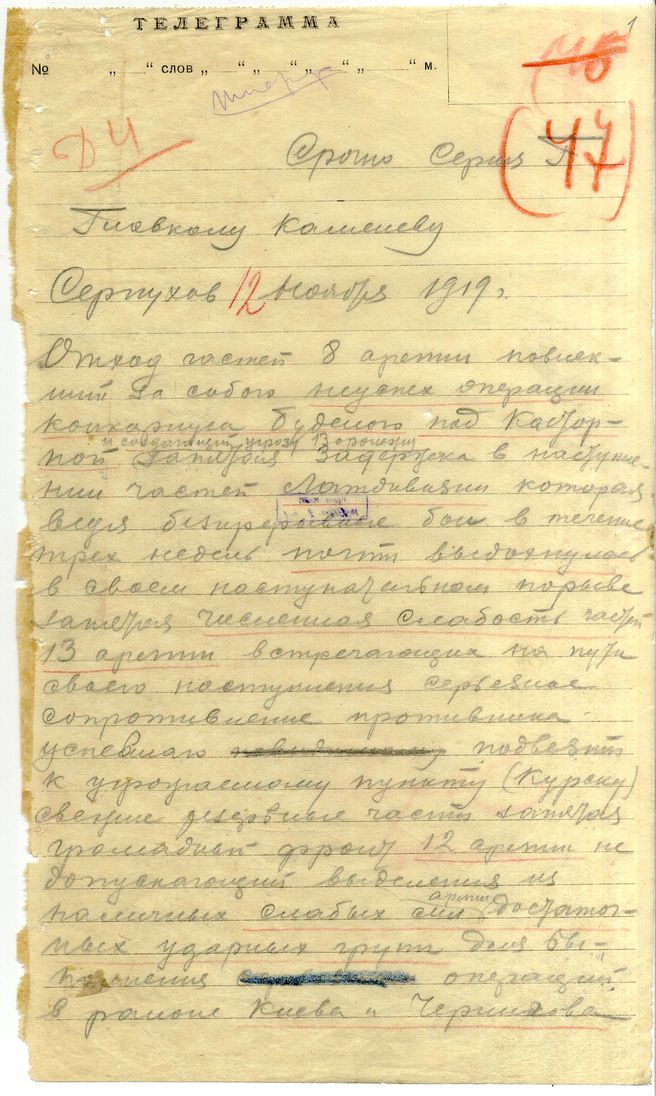 1
ТЕЛЕГРАММА
№ „ “ слов „ “ „ “ „ “ „ “ м.
46
(47)
Д 4
Срочно Серия А
Главкому Каменеву
Серпухов 12 ноября 1919 г.
Отход частей 8 армии повлек-
ший за собою неуспех операции
конкорпуса Буденого под Кастор-
и создающий угрозу 13 армии
ной затем задержка в наступле-
нии частей Латдивизии которая
ведя безпрерывные бои в течение
трех недель почти выдохнулась
в своем наступательном порыве
затем численная слабость частей
13 армии встречающих на пути
своего наступления серьезное
сопротивление противника
успевшаго подвезти
к угрожаемому пункту (Курску)
свежие резервные части затем
громадный фронт 12 армии не
допускающий выделения из
армии
наличных слабых сил достаточ-
ных ударных групп для вы-
полнения операций
в районе Киева и Чернигова